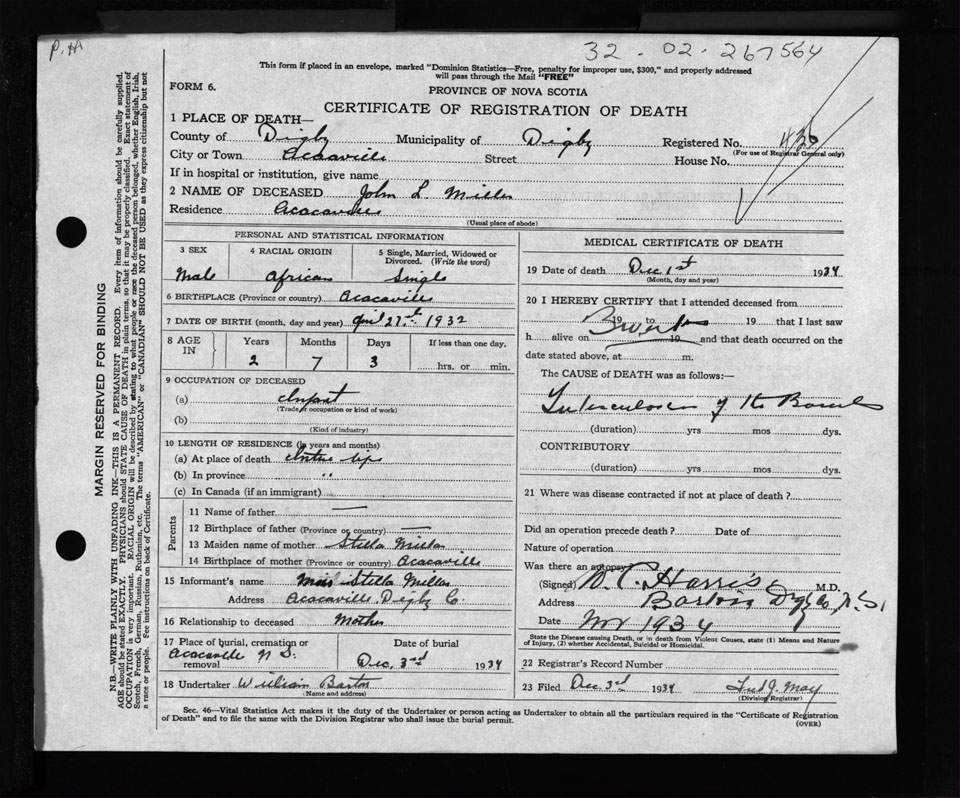 P.H
32 - 02 - 267564
This form if placed in an envelope, marked "Dominion Statistics—Free, penalty for improper use, $300," and properly addressed
will pass through the Mail "FREE"
FORM 6.
PROVINCE OF NOVA SCOTIA
CERTIFICATE OF REGISTRATION OF DEATH
1 PLACE OF DEATH—
County of Digby Municipality of Digby Registered No.
(For use of Registrar General only)
City or Town Acacaville Street House No.
If in hospital or institution, give name
2 NAME OF DECEASED John L. Miller
Residence Acacaville
(Usual place of abode)
PERSONAL AND STATISTICAL INFORMATION
3 SEX 4 RACIAL ORIGIN 5 Single, Married, Widowed or
Divorced. (Write the word)
Male African Single
6 BIRTHPLACE (Province or country) Acacaville
7 DATE OF BIRTH (month, day and year) April 27th 1932
8 AGE IN Years Months Days If less than one day,
2 7 3 hrs. or min.
9 OCCUPATION OF DECEASED
(a) Infant
(Trade or occupation or kind of work)
(b)
(Kind of industry)
10 LENGTH OF RESIDENCE (in years and months)
(a) At place of death Entire life
(b) In province "
(c) In Canada (if an immigrant)
Parents
11 Name of father —
12 Birthplace of father (Province or country) —
13 Maiden name of mother Stella Miller
14 Birthplace of mother (Province or country) Acacaville
15 Informant's name Miss Stella Miller
Address Acacaville Digby Co.
16 Relationship to deceased Mother
17 Place of burial, cremation or removal Date of burial
Acacaville N S. Dec. 3rd 1934
18 Undertaker William Barton
(Name and address)
MEDICAL CERTIFICATE OF DEATH
19 Date of death Dec 1st 1934
(Month, day and year)
20 I HEREBY CERTIFY that I attended deceased from
19 to 19 that I last saw
h alive on 19 and that death occurred on the
date stated above, at m.
The CAUSE of DEATH was as follows:—
Tuberculosis of the Bowels
(duration) yrs mos dys.
CONTRIBUTORY
(duration) yrs mos dys.
21 Where was disease contracted if not at place of death?
Did an operation precede death? Date of
Nature of operation
Was there an autopsy
(Signed) Harris M.D.
Address Barton Digby Co. N.S.
Date Nov 1934
State the Disease causing Death, or in death from Violent Causes, state (1) Means and Nature
of Injury, (2) whether Accidental, Suicidal or Homicidal.
22 Registrar's Record Number
23 Filed Dec 3rd 1934 May
(Division Registrar)
Sec. 46—Vital Statistics Act makes it the duty of the Undertaker or person acting as Undertaker to obtain all the particulars required in the "Certificate of Registration
of Death" and to file the same with the Division Registrar who shall issue the burial permit.
(OVER)
MARGIN RESERVED FOR BINDING
N.B.—WRITE PLAINLY WITH UNFADING INK—THIS IS A PERMANENT RECORD. Every item of information should be carefully supplied.
AGE should be stated EXACTLY. PHYSICIANS should STATE CAUSE OF DEATH in plain terms, so that it may be properly classified. Exact statement of
OCCUPATION is very important. RACIAL ORIGIN will be described by stating to what people or race the deceased person belonged, whether English, Irish,
Scotch, French, German, Russian, Ruthenian, etc. The terms "AMERICAN" or "CANADIAN" SHOULD NOT BE USED as they express citizenship but not
a race or people. See instructions on back of Certificate.